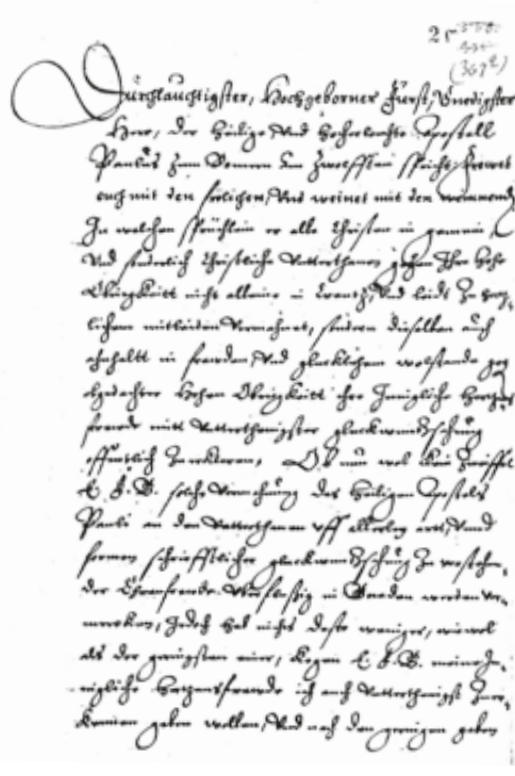 25
(369
Durchlauchtigster, Hochgeborner Fürst, Gnedigster
Herr, der Heilige Vnd Hocherleuchte Apostell
Paulus Zum Romern am Zwolfften spricht, frewet
euch mit den frolichen, Vnd weinet mit den weinenden
In welchen spruchlein er alle Christen in gemein,
Vnd sonderlich Christliche Vnterthanen gegen Ihre Hohe
Obrigkeitt nicht alleine in Creutz Vnd leidt Zu
lichem mitleiden Vermahnet, sondern dieselben auch
anheltt in frewden Vnd glucklichem wolstande geg
obgedachter Hohen Obrigkeitt ihre Innigliche Hertzens
frewde mitt Vnterthenigster gluckwunschung
offentlich Zu erkleren, Ob nun wol kein Zweiffel
E. F. G. solche Vermahnung des Heiligen Apostels
Pauli an den Vnterthanen vff allerley artt, Vnnd
formen schrifftlicher gluckwunschung Zu verstehen,
der Ehrenfreude in Gnaden werden ver
mercken, Jedoch hab nichts desto weniger, wiewol
als der geringsten einer, kegen E. F. G. meine In
nigliche Hertzensfrewde ich auch Vnterthenigst Zuer
kennen geben wollen, Vnd nach den geringen gaben